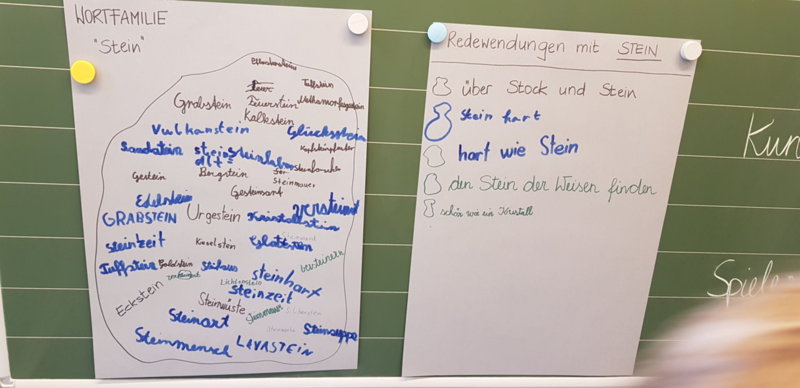 WORTFAMILIE
"Stein"
Tuffstein
Grabstein Feuerstein
Kalkstein
Vulkanstein Glücksstein
Sandstein
Gestein Bergstein
Steinmauer
Gesteinsart
Edelstein
GRABSTEIN Urgestein Kristallstein
steinzeit Kieselstein
Tuffstein Goldstein
versteinern
steinhart
Lichtenstein
steinzeit
Eckstein Steinwüste
Steinart Steinsuppe
Steinmensch LAVASTEIN
Redewendungen mit STEIN
über Stock und Stein
Stein hart
hart wie Stein
den Stein der Weisen finden
schön wie ein Kristall
Kun
Spiele